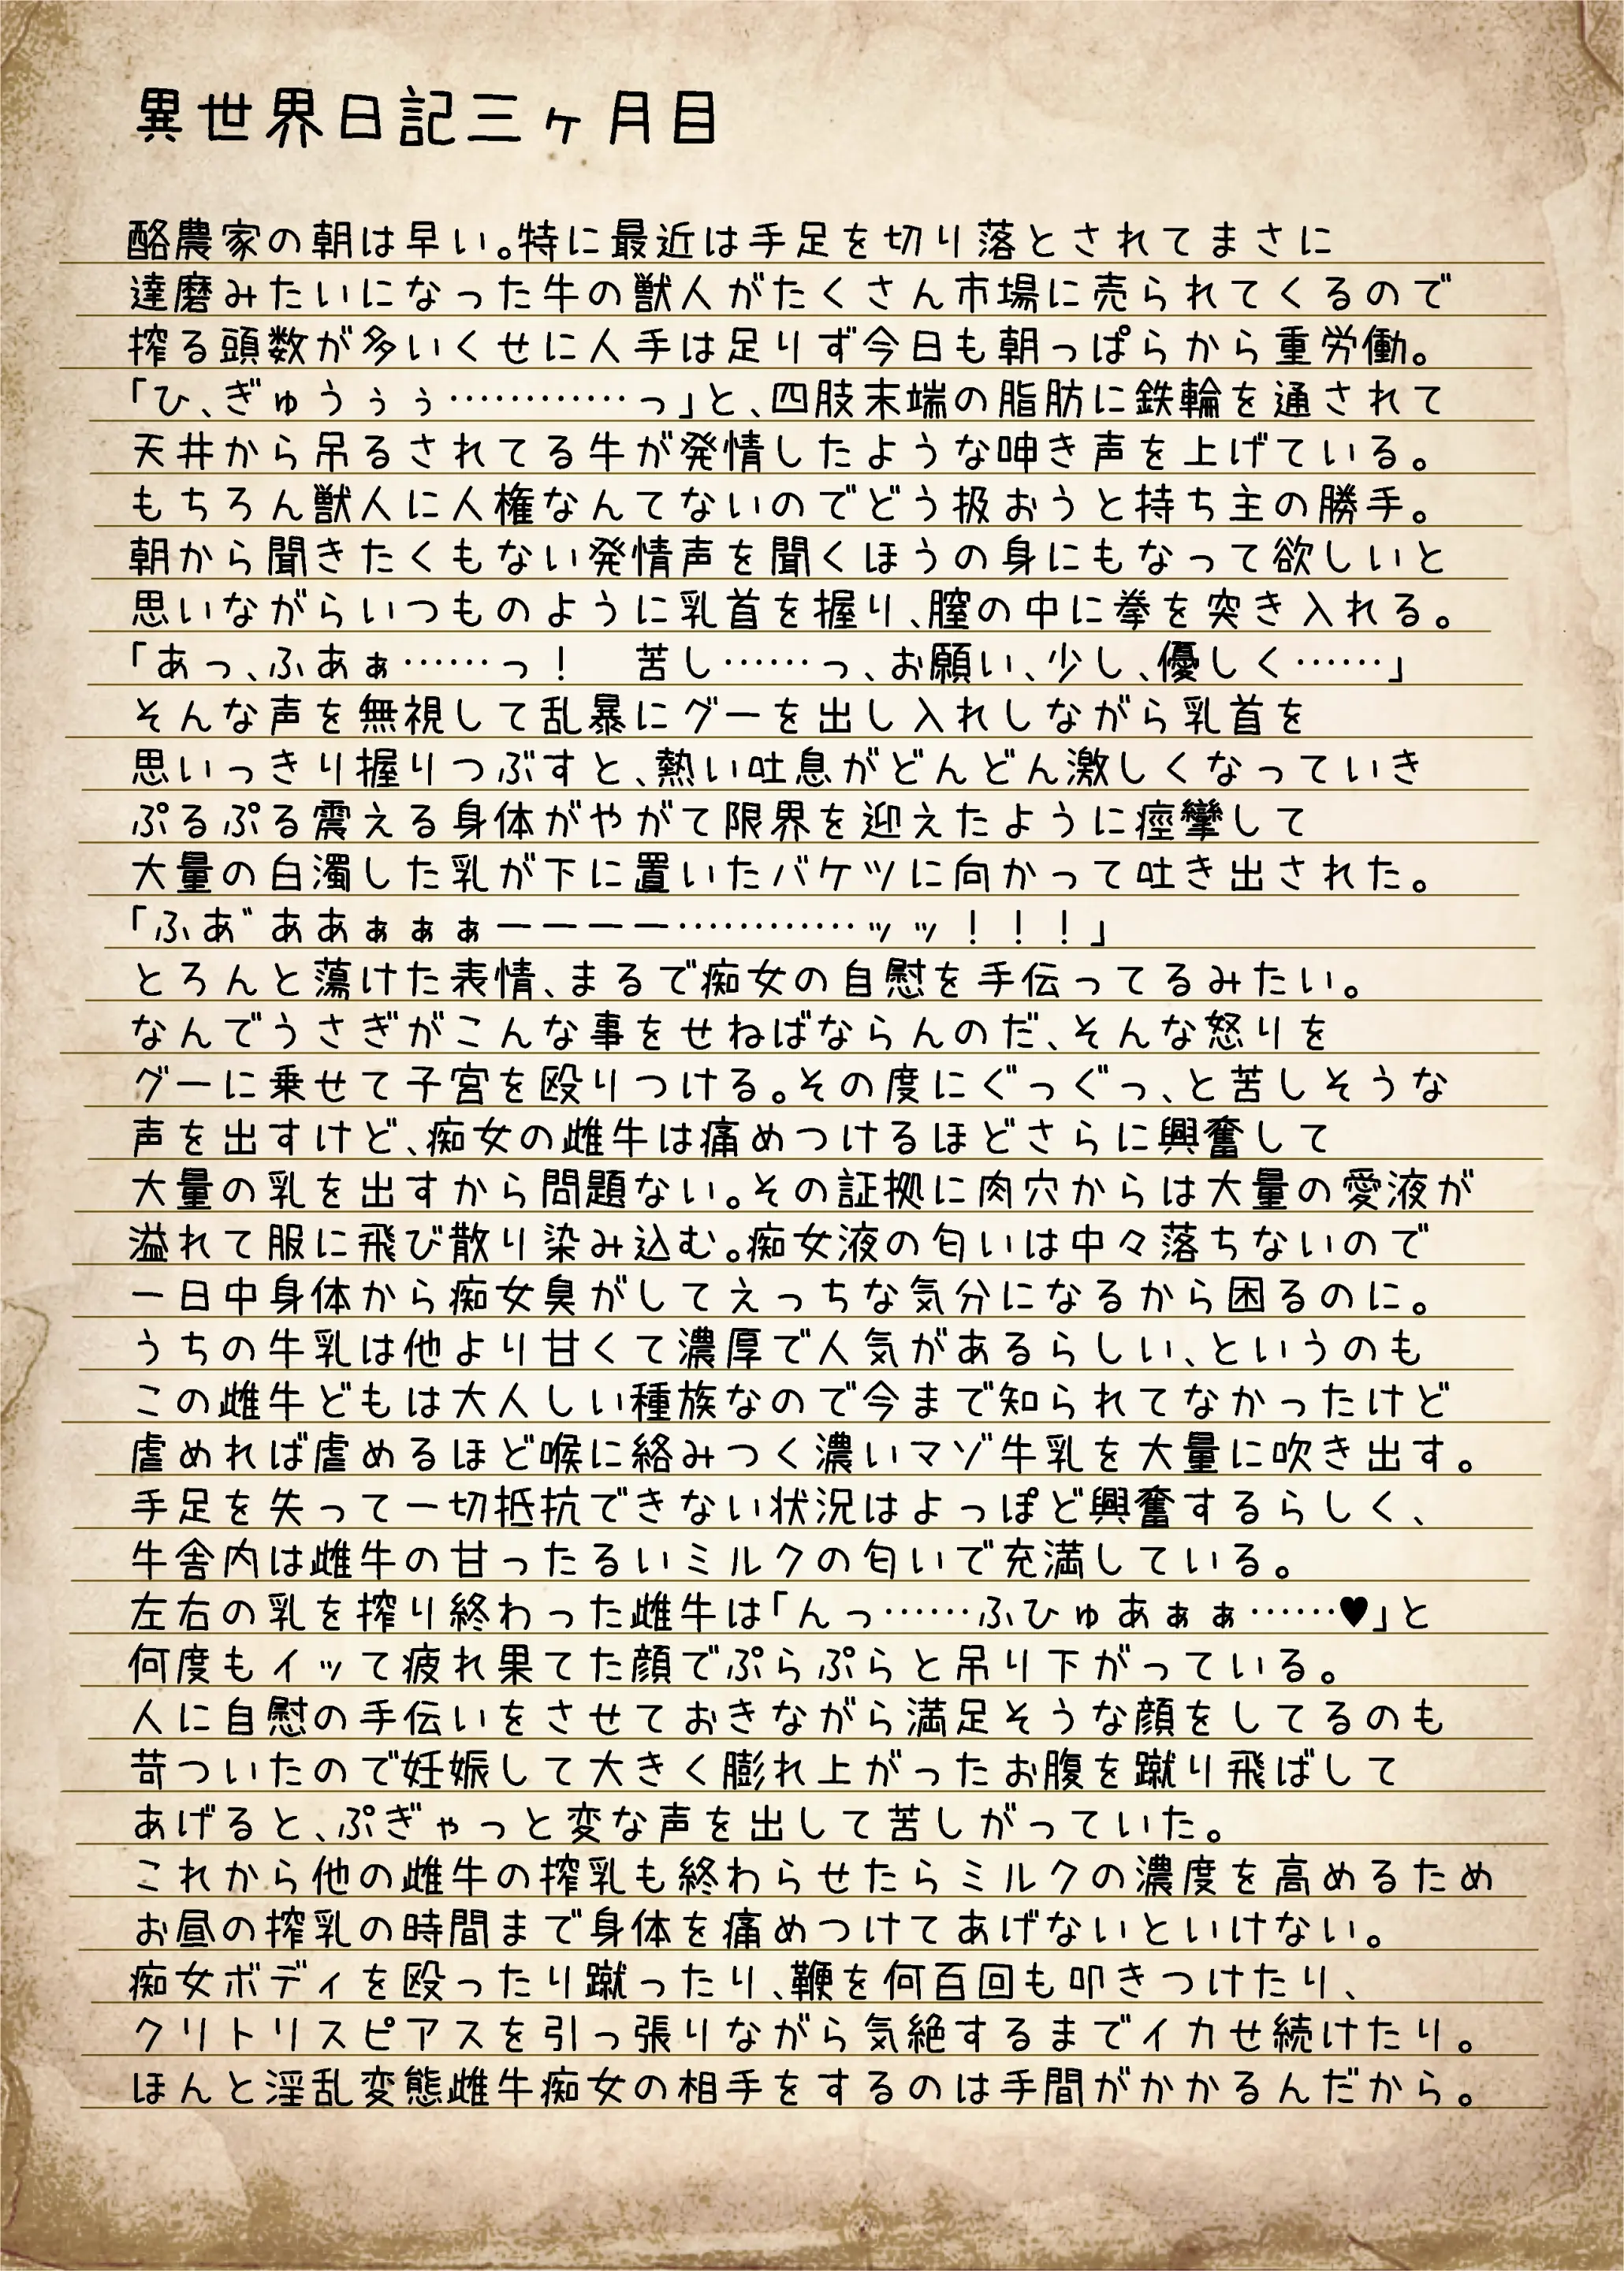 異世界日記三ヶ月目
酪農家の朝は早い。特に最近は手足を切り落とされてまさに
達磨みたいになった牛の獣人がたくさん市場に売られてくるので
搾る頭数が多いくせに人手は足りず今日も朝っぱらから重労働。
「ひ、ぎゅうぅぅ…………っ」と、四肢末端の脂肪に鉄輪を通されて
天井から吊るされてる牛が発情したような呻き声を上げている。
もちろん獣人に人権なんてないのでどう扱おうと持ち主の勝手。
朝から聞きたくもない発情声を聞くほうの身にもなって欲しいと
思いながらいつものように乳首を握り、膣の中に拳を突き入れる。
「あっ、ふあぁ……っ!　苦し……っ、お願い、少し、優しく……」
そんな声を無視して乱暴にグーを出し入れしながら乳首を
思いっきり握りつぶすと、熱い吐息がどんどん激しくなっていき
ぷるぷる震える身体がやがて限界を迎えたように痙攣して
大量の白濁した乳が下に置いたバケツに向かって吐き出された。
「ふあ゛ああぁぁぁーーーー…………ッッ!!!」
とろんと蕩けた表情、まるで痴女の自慰を手伝ってるみたい。
なんでうさぎがこんな事をせねばならんのだ、そんな怒りを
グーに乗せて子宮を殴りつける。その度にぐっぐっ、と苦しそうな
声を出すけど、痴女の雌牛は痛めつけるほどさらに興奮して
大量の乳を出すから問題ない。その証拠に肉穴からは大量の愛液が
溢れて服に飛び散り染み込む。痴女液の匂いは中々落ちないので
一日中身体から痴女臭がしてえっちな気分になるから困るのに。
うちの牛乳は他より甘くて濃厚で人気があるらしい、というのも
この雌牛どもは大人しい種族なので今まで知られてなかったけど
虐めれば虐めるほど喉に絡みつく濃いマゾ牛乳を大量に吹き出す。
手足を失って一切抵抗できない状況はよっぽど興奮するらしく、
牛舎内は雌牛の甘ったるいミルクの匂いで充満している。
左右の乳を搾り終わった雌牛は「んっ……ふひゅあぁぁ……♥」と
何度もイッて疲れ果てた顔でぷらぷらと吊り下がっている。
人に自慰の手伝いをさせておきながら満足そうな顔をしてるのも
苛ついたので妊娠して大きく膨れ上がったお腹を蹴り飛ばして
あげると、ぷぎゃっと変な声を出して苦しがっていた。
これから他の雌牛の搾乳も終わらせたらミルクの濃度を高めるため
お昼の搾乳の時間まで身体を痛めつけてあげないといけない。
痴女ボディを殴ったり蹴ったり、鞭を何百回も叩きつけたり、
クリトリスピアスを引っ張りながら気絶するまでイカせ続けたり。
ほんと淫乱変態雌牛痴女の相手をするのは手間がかかるんだから。